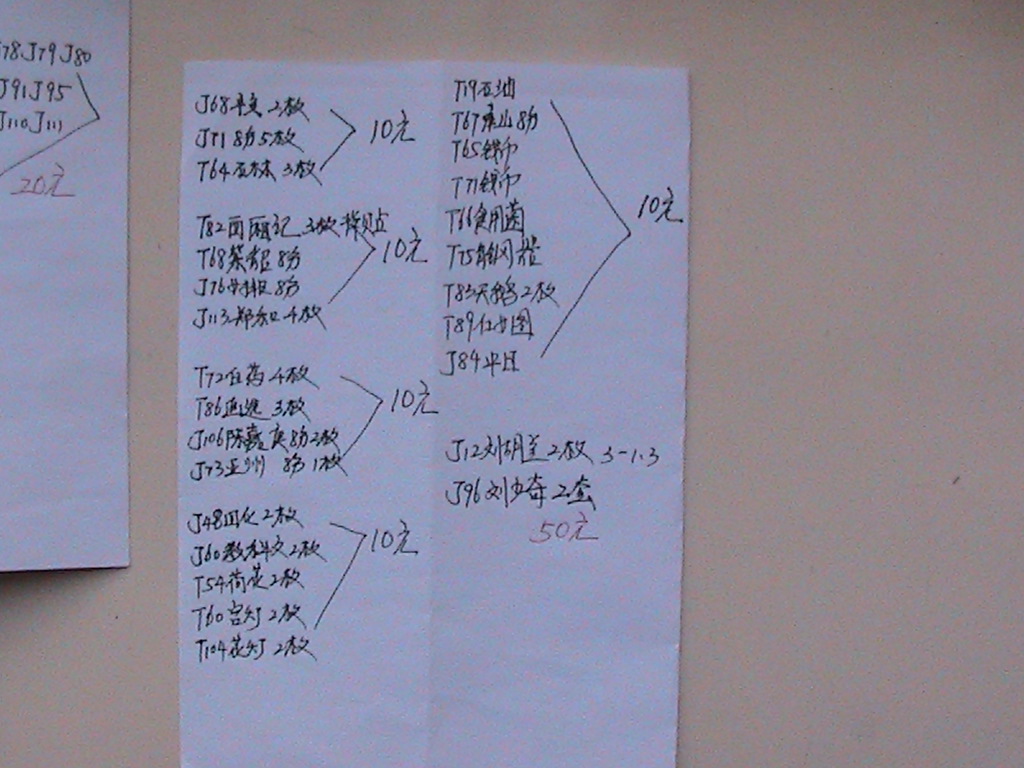 J78 J79 J80
J91 J95
J110 J111
20元
J68 2枚
J71 8分 5枚
T64 石林 3枚
10元
T82 西厢记 3枚 背贝占
T68 紫貂 8分
J76 女排 8分
J113 郑和 4枚
10元
T72 药 4枚
T86 3枚
J106 陈嘉庚 8分 2枚
J73 亚州 8分 1枚
10元
J48 四化 2枚
J60 教科文 2枚
T54 荷花 2枚
T60 宫灯 2枚
T104 花灯 2枚
10元
T19 石油
T67 庐山 8分
T65 钱币
T71 钱币
T66 食用菌
T75
T83 天鹅 2枚
T89 仕女图
J84 平日
10元
J12 刘胡兰 2枚 3-1.3
J96 刘少奇 2套
50元